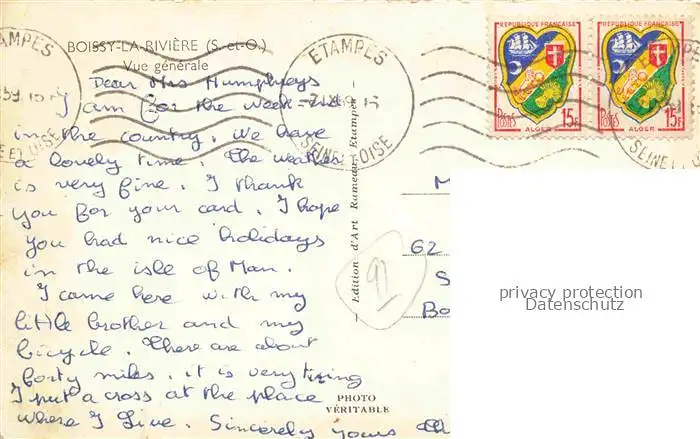 BOISSY-LA-RIVIÈRE (S.-et-O.)
Vue générale
ETAMPES
ETAMPES
SEINE ET OISE
REPUBLIQUE FRANÇAISE
REPUBLIQUE FRANÇAISE
POSTES ALGER 15F
POSTES ALGER 15F
Dear Mrs Humphreys
I am for the week-end
in the country. We have
a lovely time. The weather
is very fine. I thank
you for your card. I hope
you had nice holidays
in the isle of Man.
I came here with my
little brother and my
bicycle. There are about
forty miles. it is very tiring
I put a cross at the place
where I live. Sincerely yours
— Edition d'Art Rameau, Etampes —
PHOTO
VÉRITABLE
92
M
62
S
Bo
privacy protection
Datenschutz